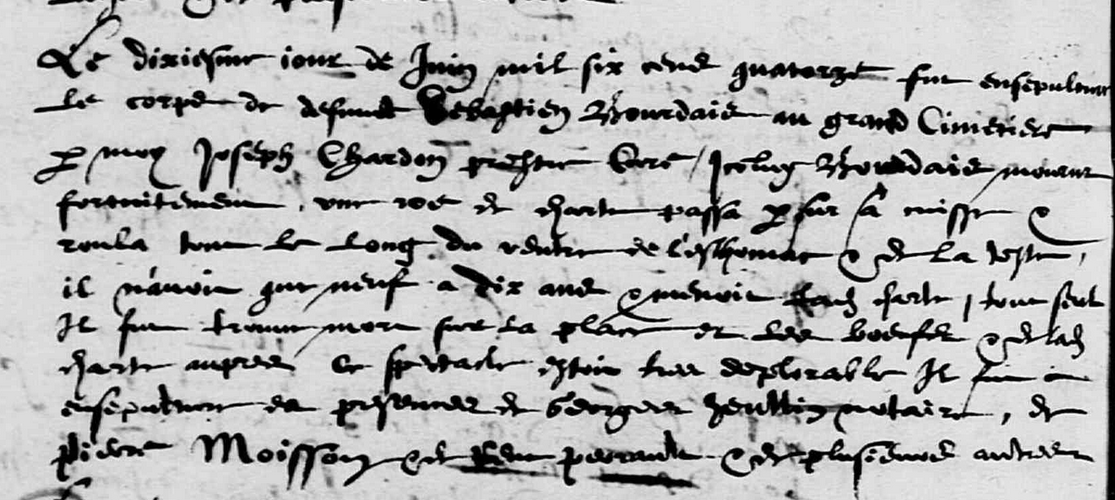 Le dixiesme iour de Juin mil six cens quatorze fut ensepulturé
le corps de defunct Sebastien Bourdais au grand Cimetiere
p moy Joseph Chardon prestre Curé, Icelluy Bourdais mourut
fortuitement, une roe de charte passa p sur sa cuisse &
roula tout le long du ventre de l'esthomac & de la teste,
il n'auoit que neuf a dix ans & menoit lad charte tout seul
Il fut trouué mort sur la place et les boeufs & lad
charte aupres Ce spectacle estoit tres deplorable Il fut
ensepulturé es presences de Georges notaire, de
pierre Moisson & de René perrault & de plusieurs autres